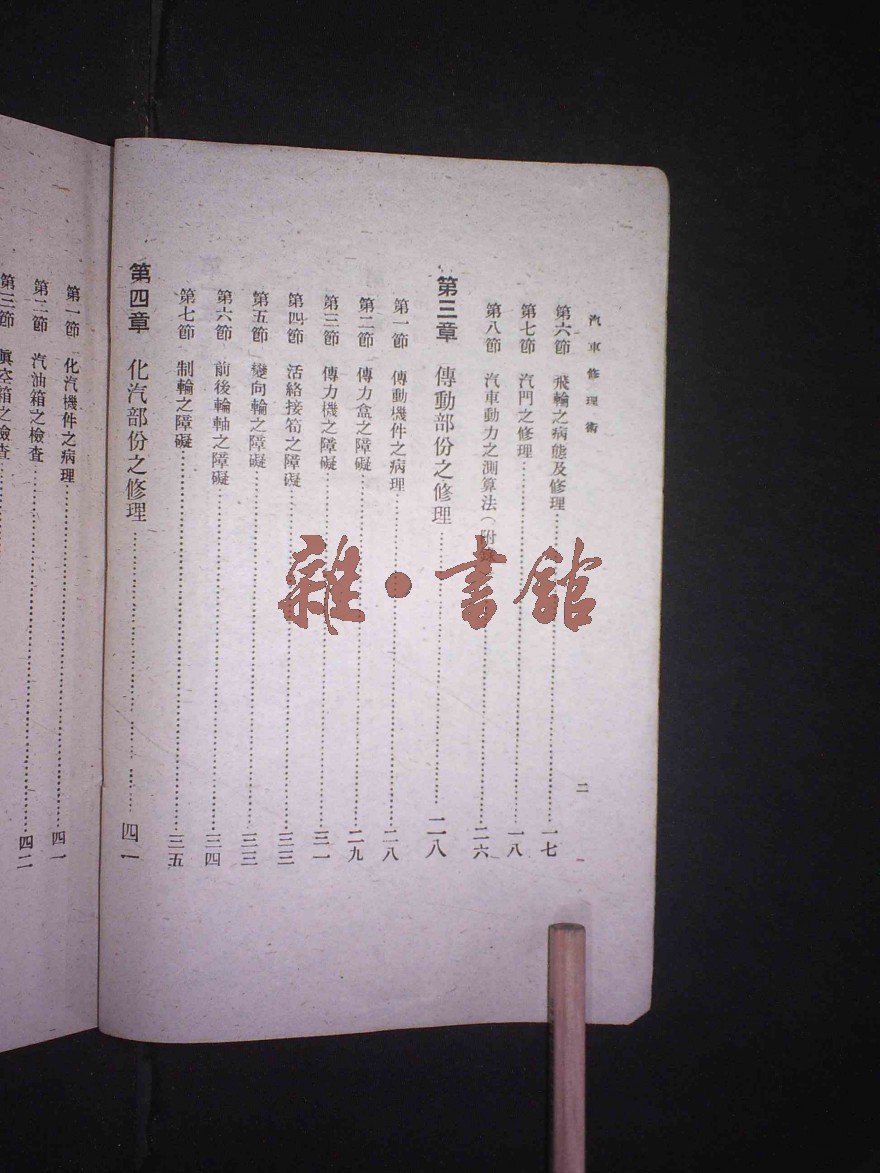 汽車修理術
二
第六節 飛輪之病態及修理 一七
第七節 汽門之修理 一八
第八節 汽車動力之測算法(附 二六
第三章 傳動部份之修理 二八
第一節 傳動機件之病理 二八
第二節 傳力盒之障礙 二九
第三節 傳力機之障礙 三一
第四節 活絡接筍之障礙 三三
第五節 變向輪之障礙 三三
第六節 前後輪軸之障礙 三四
第七節 制輪之障礙 三五
第四章 化汽部份之修理 四一
第一節 化汽機件之病理 四一
第二節 汽油箱之檢查 四二
第三節 眞空箱之檢查
雜·書館